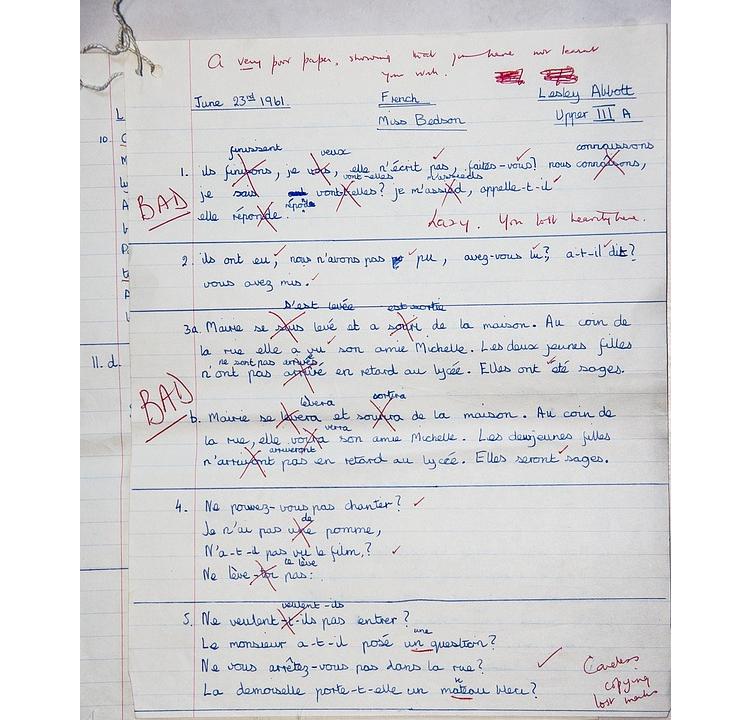 A very poor paper, showing that you have not learnt
your work.
June 23rd 1961.
French
Lesley Abbott
Miss Bedson
Upper III A
finissent
veux
connaissons
1. ils finirons, je vais, elle n'écrit pas, faites-vous? nous connaîsons,
vont-elles
m'assieds
je sais vont-elles? je m'assied, appelle-t-il
BAD
répond
elle réponde.
Lazy. You lost heavily here.
2. ils ont eu, nous n'avons pas pu, avez-vous lu? a-t-il dit?
vous avez mis.
s'est levée
est sortie
3a. Marie se suis levé et a souri de la maison. Au coin de
la rue elle a vu son amie Michelle. Les deux jeunes filles
ne sont pas arrivés
n'ont pas arrivé en retard au lycée. Elles ont été sages.
BAD
lèvera
sortira
b. Marie se levera et sourira de la maison. Au coin de
verra
la rue, elle voira son amie Michelle. Les deux jeunes filles
arriveront
n'arrivont pas en retard au lycée. Elles seront sages.
4. Ne pouvez-vous pas chanter?
de
Je n'ai pas une pomme,
N'a-t-il pas vu le film,?
te lève
Ne lève-toi pas:
veulent-ils
5. Ne veulent-t-ils pas entrer?
une
Le monsieur a-t-il posé un question?
Ne vous arrêtez-vous pas dans la rue?
La demoiselle porte-t-elle un mateau bleu?
Careless
copying
lost marks
10.
11. d.